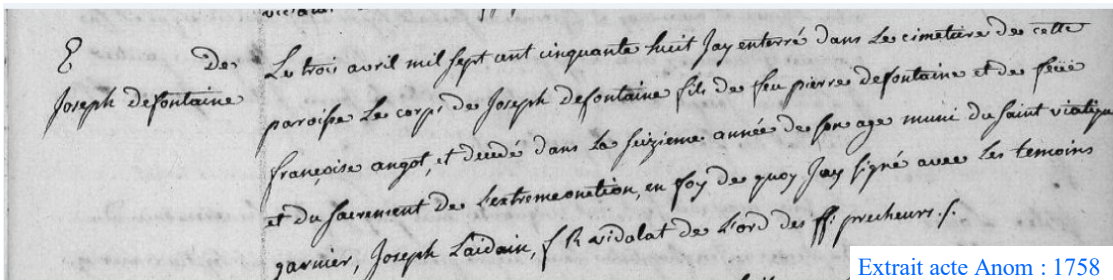 E de
Joseph defontaine
Le trois avril mil sept cent cinquante huit Jay enterré dans Le cimetiere de cette
paroisse Le corps de Joseph defontaine fils de feu pierre defontaine et de feüe
françoise angot, et decedé dans La seizieme année de son age muni du saint viatique
et du sacrement de L'extremeonction, en foy de quoy Jay signé avec Les temoins
garnier, Joseph Laidain, f R vidalat de L'ord des ff: precheurs ./.
Extrait acte Anom : 1758